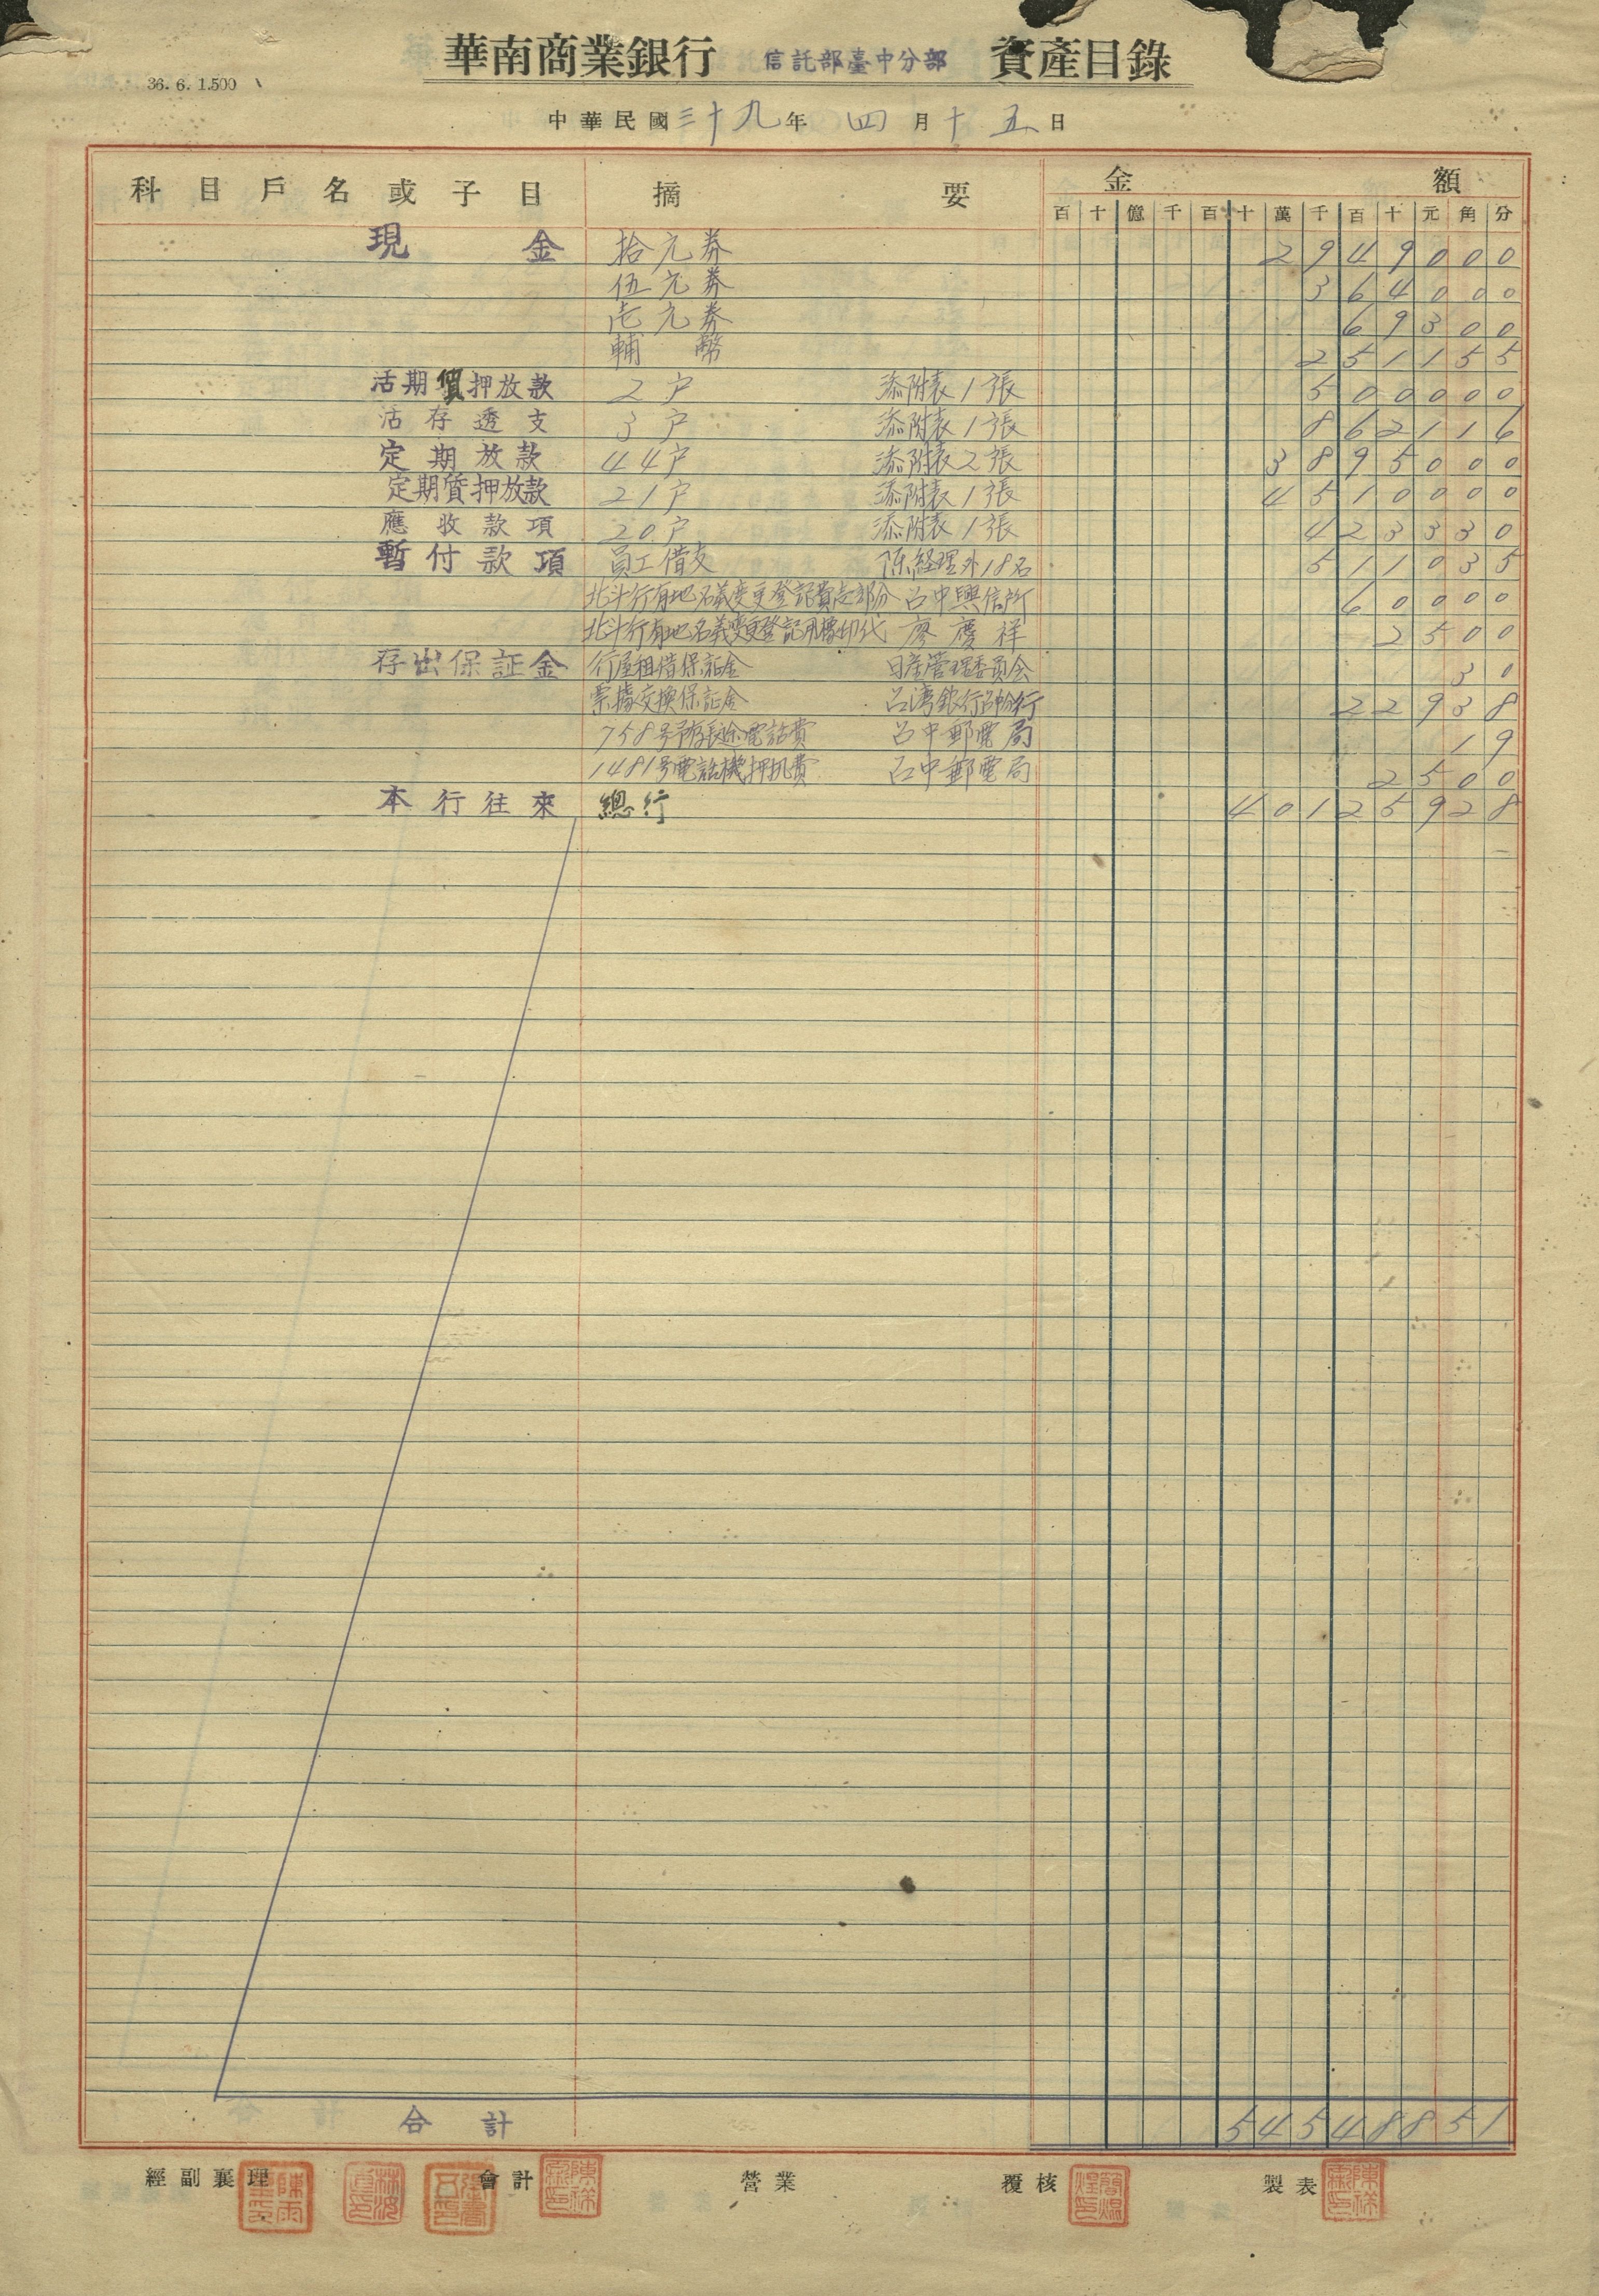 華南商業銀行 信託部臺中分部 資產目錄
36. 6. 1.500
中華民國三十九年 四月十五日
科目戶名或子目 摘要 金額
百十億千百十萬千百十元角分
現金 拾元券 2949000
伍元券 364000
壱元券 69300
輔幣 251155
活期質押放款 2戶 添附表1張 500000
活存透支 3戶 添附表1張 862116
定期放款 44戶 添附表2張 3895000
定期質押放款 21戶 添附表1張 4510000
應收款項 20戶 添附表1張 423330
暫付款項 員工借支 陳經理外18名 511035
北斗行有地名義変更登記費壱部分 台中興信所 60000
北斗行有地名義変更登記用橡印代 廖慶祥 2500
存出保証金 行屋租借保証金 日産管理委員会 30
票據交換保証金 台湾銀行台中分行 22938
758号市外長途電話費 台中郵電局 19
1481号電話機押机費 台中郵電局 2500
本行往來 總行 40125928
合計 54548851
經副襄理 會計 營業 覆核 製表